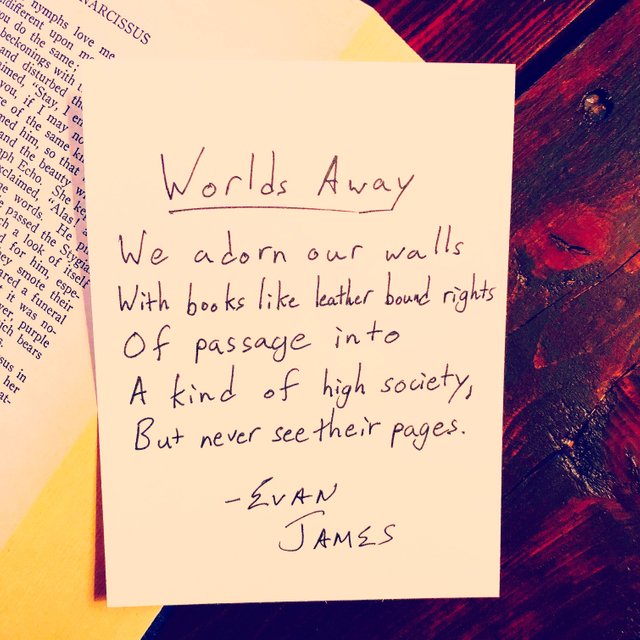 NARCISSUS
nymphs love me
indifferent upon m
ou do the same
beckonings with
and disturbed th
imed, "Stay, I en
you, if I may no
re of the same
ned him, so that
and the beauty w
ph Echo. She ke
xclaimed, "Alas!
e words. He p
e passed the Stygia
ch a look of itself
d for him, espe-
ey smote their
ared a funeral
it was no-
wer, purple
ich bears
s.
sus in
her
at-
Worlds Away
We adorn our walls
With books like leather bound rights
Of passage into
A kind of high society,
But never see their pages.
- EVAN
JAMES